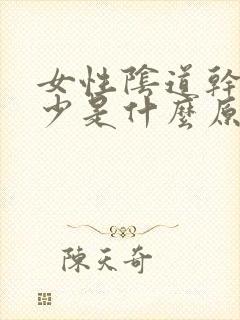 女性陰道幹
少是什麼原
陳天奇